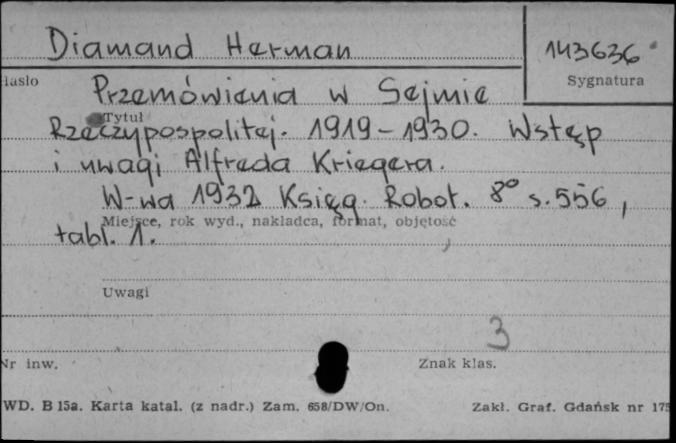 Diamand Herman
143636
Hasło
Sygnatura
Przemówienia w Sejmie
Tytuł
Rzeczypospolitej. 1919-1930. Wstęp
i uwagi Alfreda Kriegera.
W-wa 1932 Księg. Robot. 8º s. 556,
Miejsce, rok wyd., nakładca, format, objętość
tabl. 1.
Uwagi
3
Nr inw.
Znak klas.
WD. B 15a. Karta katal. (z nadr.) Zam. 658/DW/On.
Zakł. Graf. Gdańsk nr 175